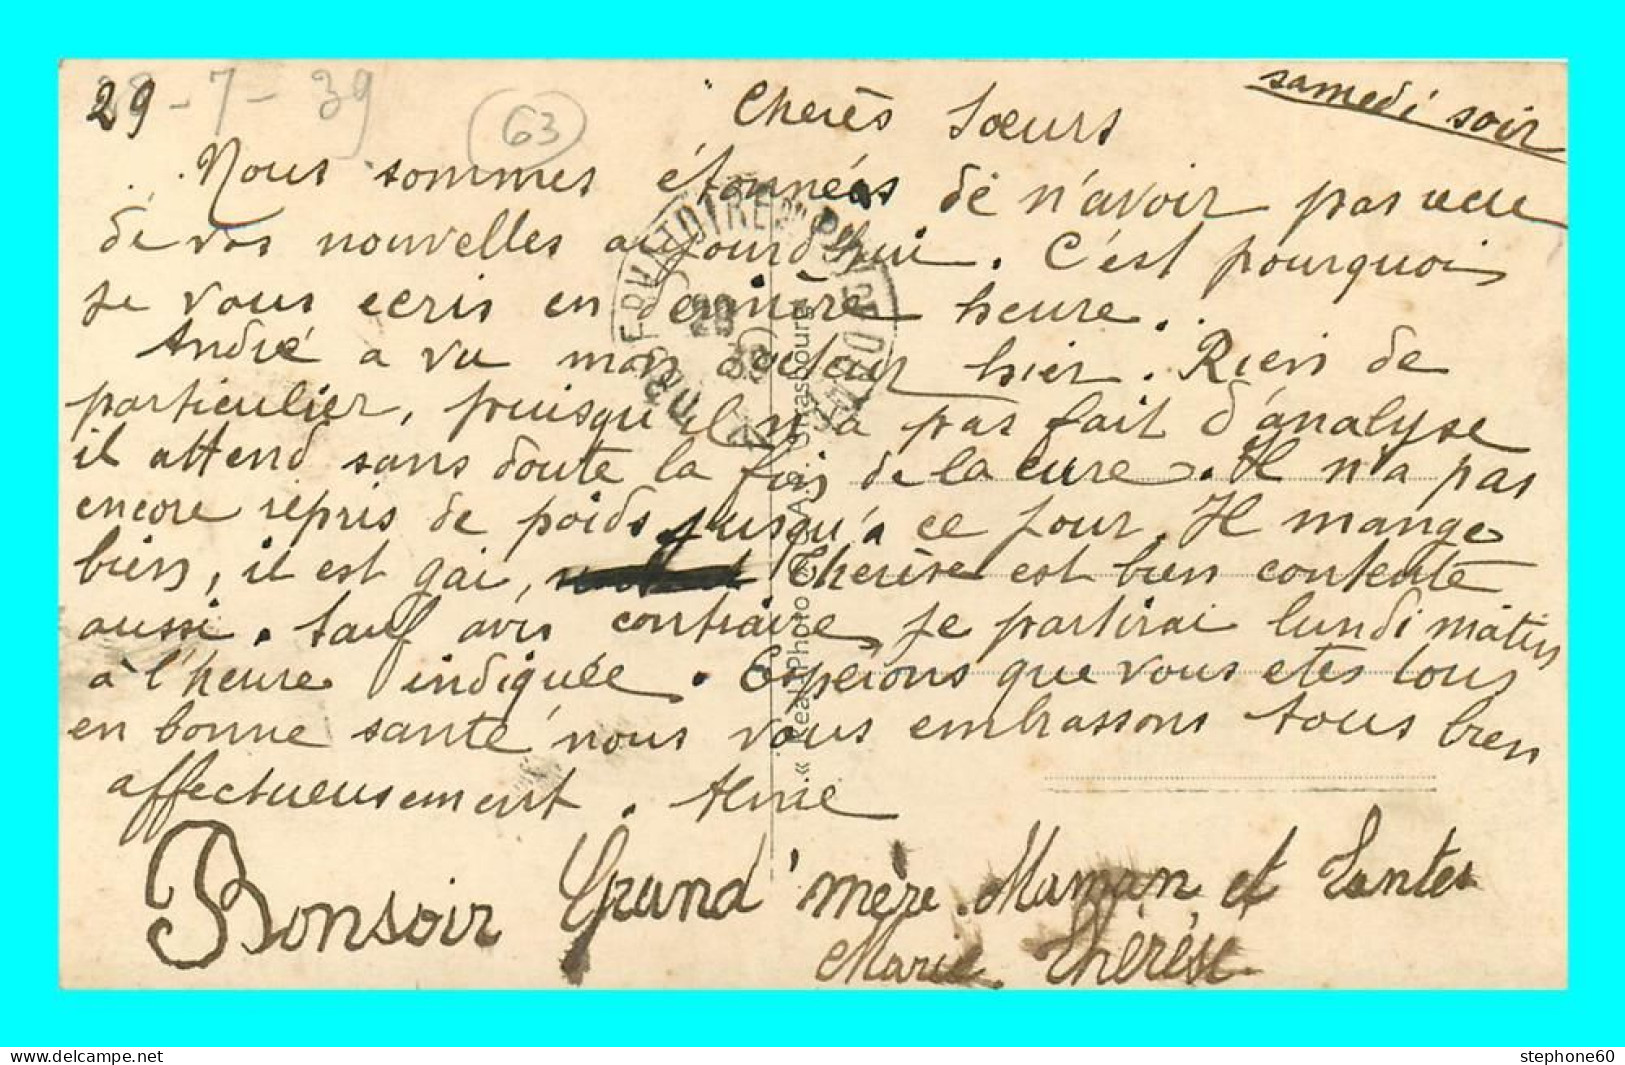 29 - 7 - 39
63
samedi soir
Cherès Sœurs
Nous sommes étonnées de n'avoir pas ueue
de vos nouvelles aujourd'hui. C'est pourquoi
je vous ecris en dernière heure.
André a vu mon docteur hier. Rien de
particulier, puisqu'il n'a pas fait d'analyse
il attend sans doute la fin de la cure. Il n'a pas
encore repris de poids jusqu'à ce jour. Il mange
bien, il est gai, Therèse est bien contente
aussi. Sauf avis contraire, je partirai lundi matin
à l'heure indiquée. Espérons que vous etes tous
en bonne santé nous vous embrassons tous bien
affectueusement. Aline
Bonsoir Grand'mère Maman et Tantes
Marie Thérèse
OBSERVATOIRE DU PUY DE DOME
« Real-Photo A. Strasbourg »
stephone60